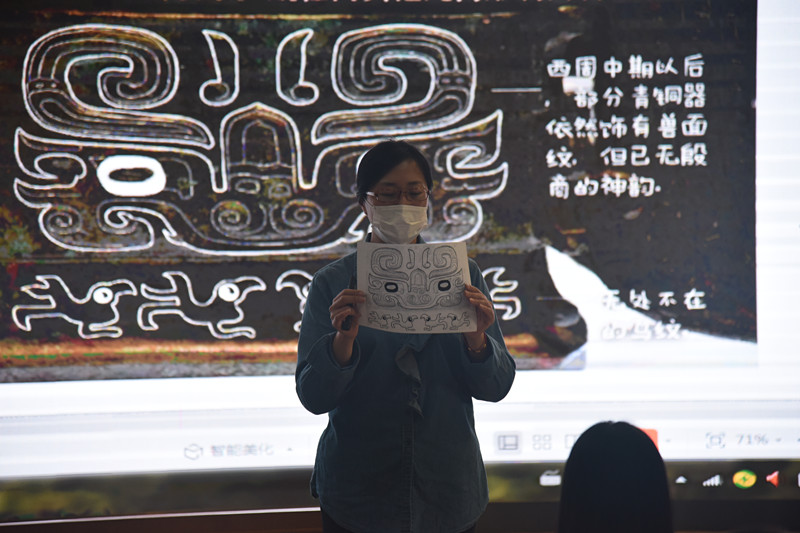 西周中期以后
，部分青铜器
依然饰有兽面
纹，但已无殷
商的神韵.
无处不在
智能美化
71%